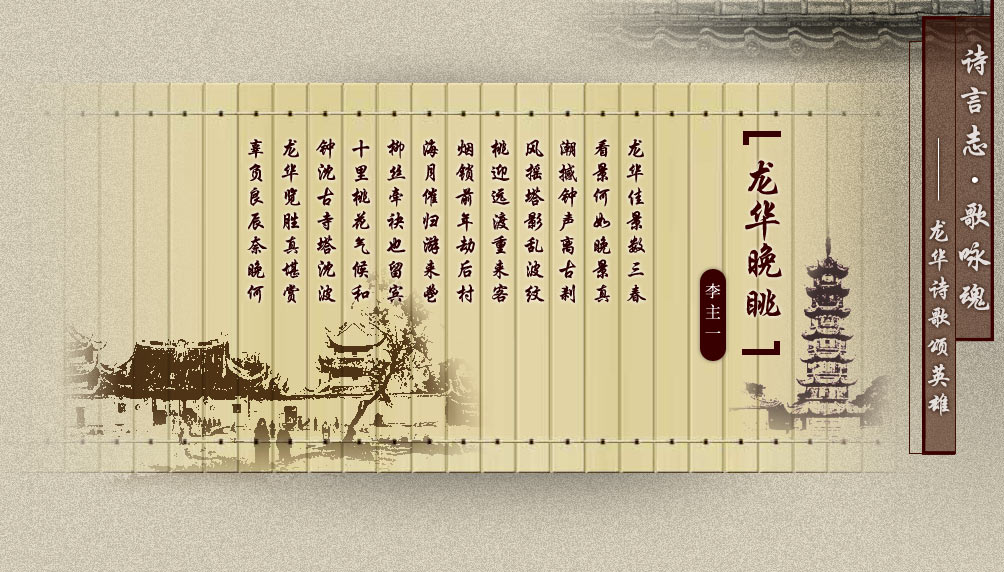 诗言志·歌咏魂
——龙华诗歌颂英雄
龙华晚眺
李主一
龙华佳景数三春
看景何如晚景真
潮撼钟声离古刹
风摇塔影乱波纹
桃迎远渡重来客
烟锁前年劫后村
海月催归游来
柳丝牵袂也留宾
十里桃花气候和
钟沈古寺塔沈波
龙华览胜真堪赏
辜负良辰奈晚何